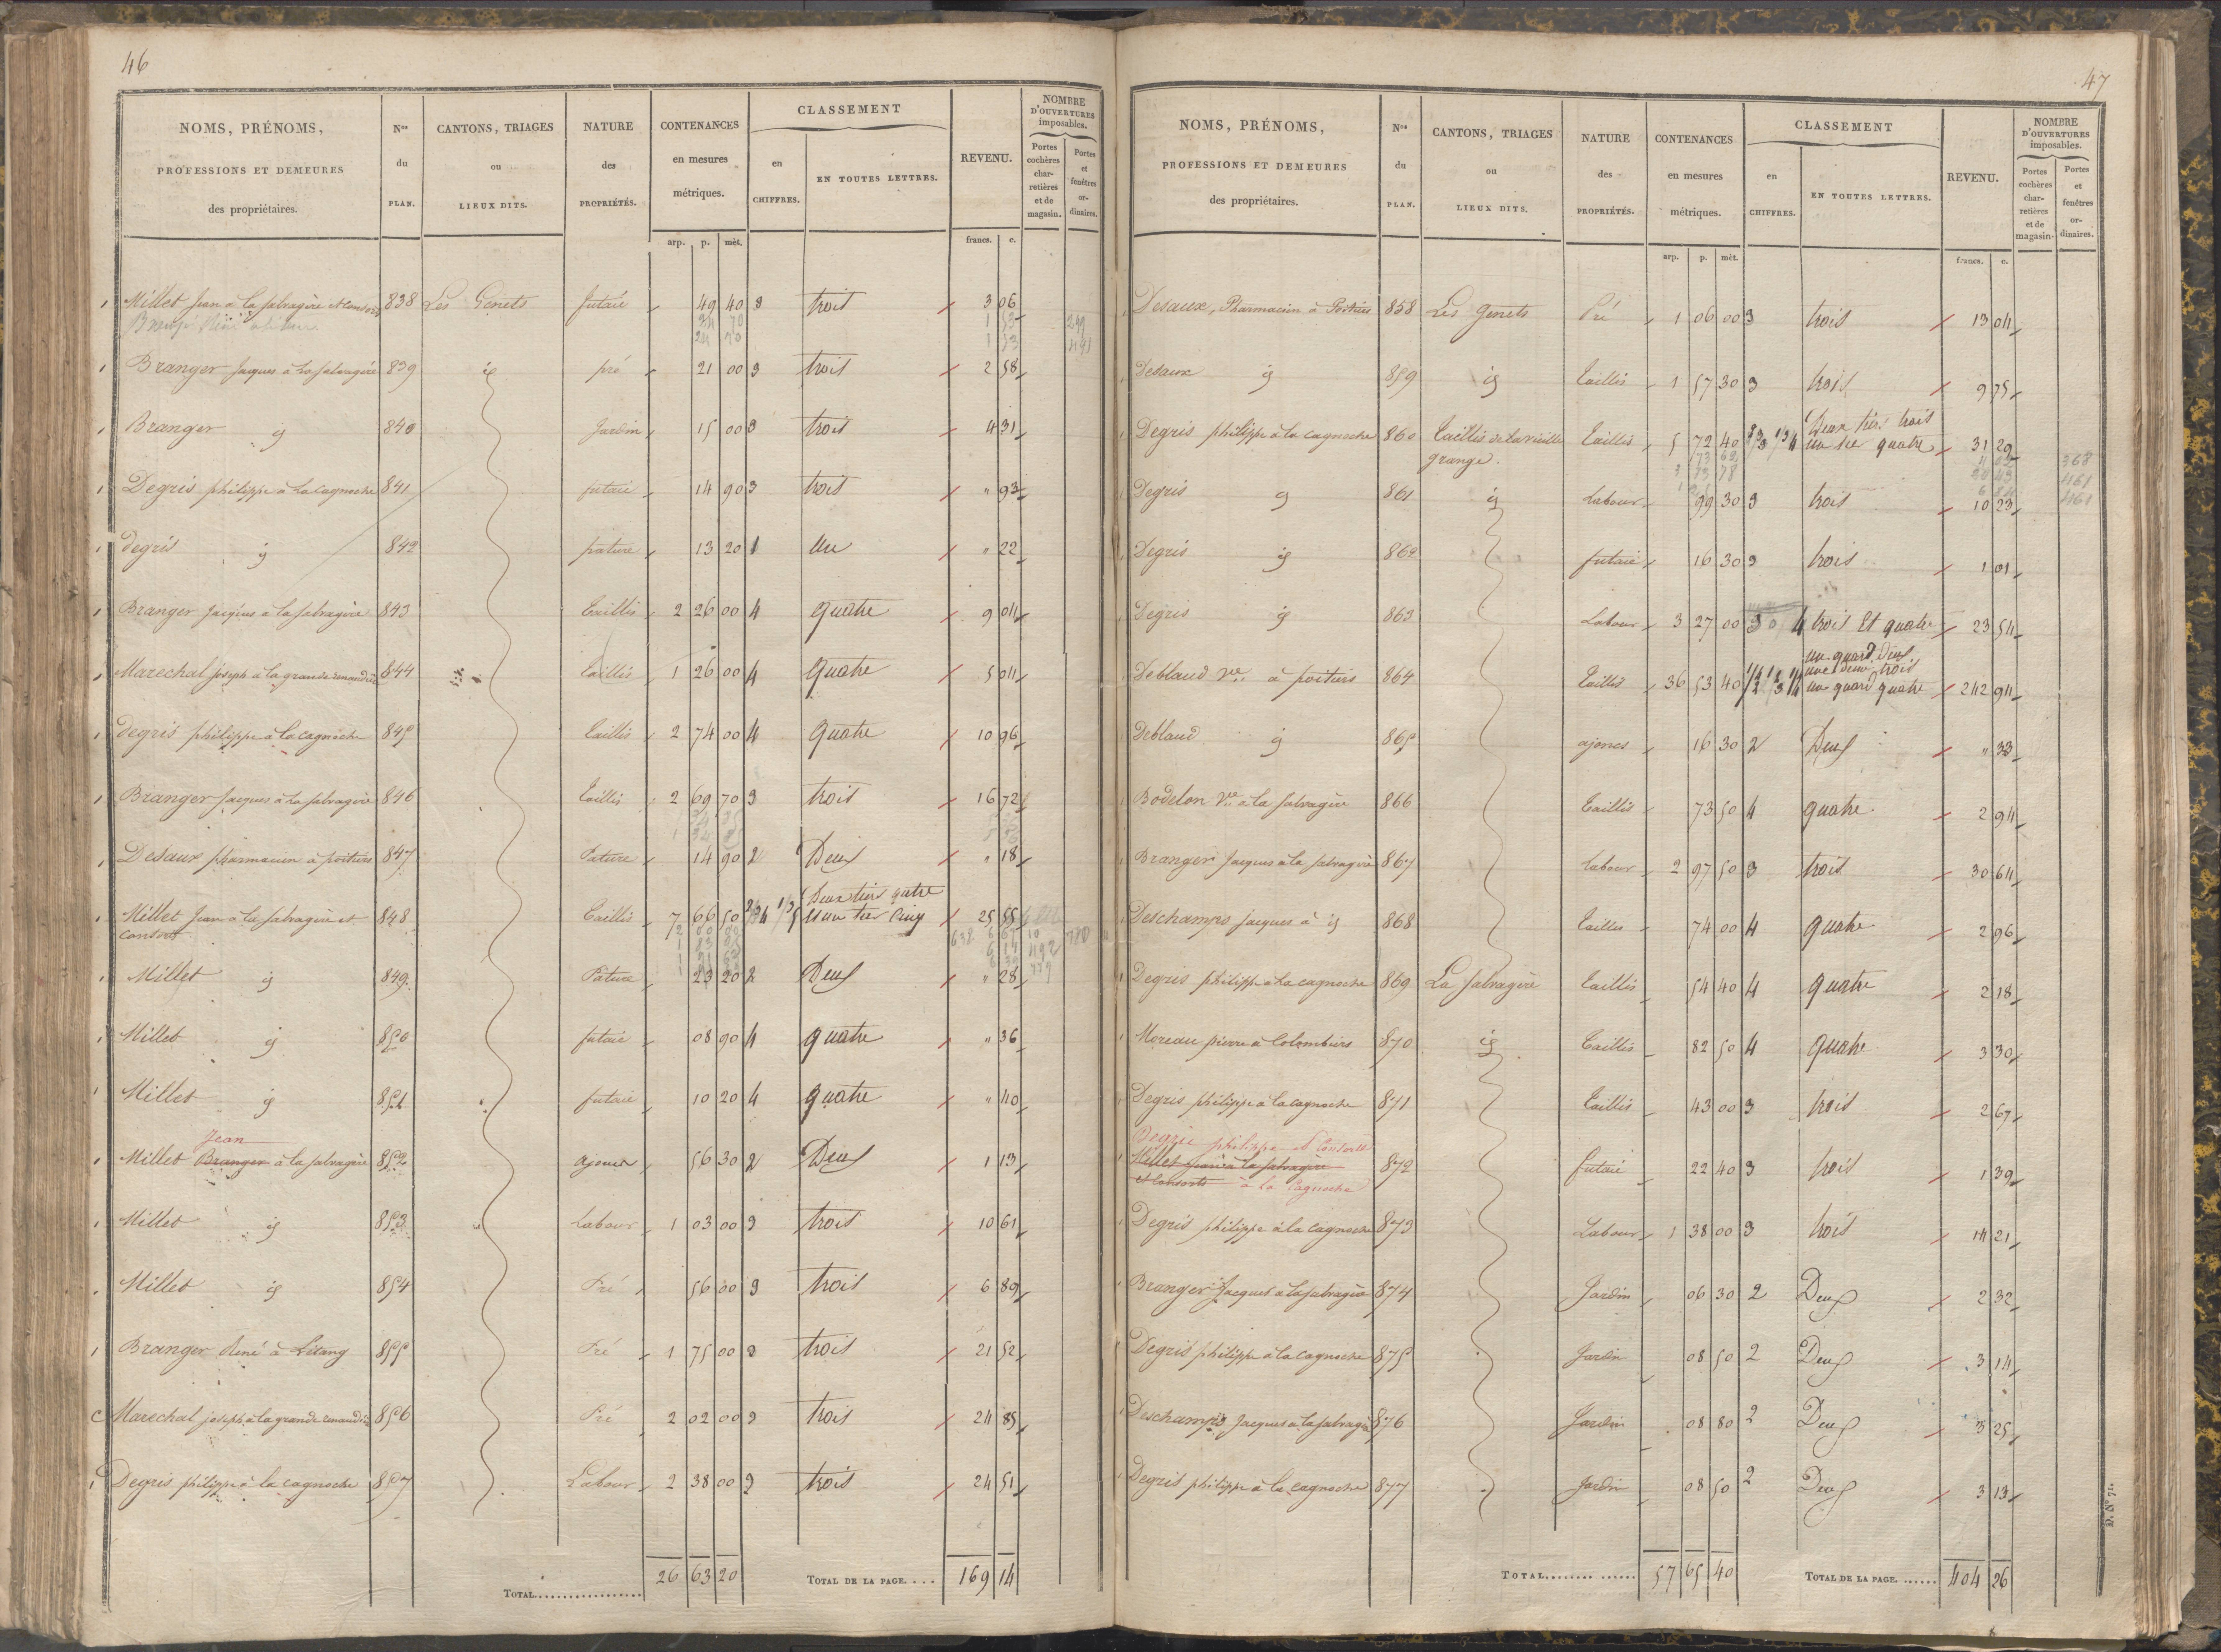 46
NOMS, PRÉNOMS, PROFESSIONS ET DEMEURES des propriétaires.
Nos du PLAN.
CANTONS, TRIAGES ou LIEUX DITS.
NATURE des PROPRIÉTÉS.
CONTENANCES en mesures métriques.
CLASSEMENT
en CHIFFRES.
EN TOUTES LETTRES.
REVENU.
NOMBRE D'OUVERTURES imposables.
Portes cochères charretières et de magasin.
Portes et fenêtres ordinaires.
arp. p. mèt. francs. c.
Millet Jean à la salvagère et Consors 838 Les Genets futaie 49 40 3 trois 3 06
24 70 1 53 249
24 70 1 53 491
Branger Jacques à la salvagère 839 id pré 21 00 3 trois 2 58
Branger id 840 Jardin 15 00 3 trois 4 31
Degris philippe à la cagnoche 841 futaie 14 90 3 trois " 93
degris id 842 pature 13 20 1 Une " 22
Branger Jacques à la salvagère 843 taillis 2 26 00 4 quatre 9 04
Marechal joseph à la grande renaudière 844 taillis 1 26 00 4 Quatre 5 04
degris philippe à la cagnoche 845 taillis 2 74 00 4 Quatre 10 96
Branger Jacques à la salvagère 846 taillis 2 69 70 3 trois 16 72
Desaux pharmacien à poitiers 847 Pature 14 90 2 Deux " 18
Millet Jean à la salvagère et consors 848 taillis 7 66 50 2/3 4 1/3 5 Deux tiers quatre et un tier Cinq 25 55
Millet id 849 Pature 23 20 2 Deux " 28
Millet id 850 futaie 08 90 4 quatre " 36
Millet id 851 futaie 10 20 4 quatre " 40
Jean
Millet Branger à la salvagère 852 ajoncs 56 30 2 Deux 1 13
Millet id 853 Labour 1 03 00 3 trois 10 61
Millet id 854 Pré 56 00 3 trois 6 89
Branger René à Létang 855 Pré 1 75 00 3 trois 21 52
Marechal joseph à la grande renaudière 856 Pré 2 02 00 3 trois 24 85
Degris philippe à la cagnoche 857 Labour 2 38 00 3 trois 24 51
TOTAL 26 63 20 TOTAL DE LA PAGE. 169 14
47
NOMS, PRÉNOMS, PROFESSIONS ET DEMEURES des propriétaires.
Nos du PLAN.
CANTONS, TRIAGES ou LIEUX DITS.
NATURE des PROPRIÉTÉS.
CONTENANCES en mesures métriques.
CLASSEMENT
en CHIFFRES.
EN TOUTES LETTRES.
REVENU.
NOMBRE D'OUVERTURES imposables.
Portes cochères charretières et de magasin.
Portes et fenêtres ordinaires.
arp. p. mèt. francs. c.
Desaux, Pharmacien à Poitiers 858 Les Genets Pré 1 06 00 3 trois 13 04
Desaux id 859 id taillis 1 57 30 3 trois 9 75
Degris philippe à la cagnoche 860 taillis de la vieille grange. taillis 5 72 40 2/3 3 1/3 4 Deux tiers trois un tier quatre 31 29
368
461
461
Degris id 861 id Labour 99 30 3 trois 10 23
Degris id 862 futaie 16 30 3 trois 1 01
Degris id 863 Labour 3 27 00 3 4 trois Et quatre 23 54
Deblaud Vve à poitiers 864 taillis 36 53 40 1/4 2 1/2 3 1/4 4 un quard deux une demie trois un quard quatre 242 94
Deblaud id 865 ajoncs 16 30 2 Deux " 33
Bodelon Vve à la salvagère 866 taillis 73 50 4 quatre 2 94
Branger Jacques à la salvagère 867 Labour 2 97 50 3 trois 30 64
Deschamps Jacques à id 868 taillis 74 00 4 quatre 2 96
Degris philippe à la cagnoche 869 La salvagère taillis 54 40 4 quatre 2 18
Moreau pierre à Colombiers 870 id taillis 82 50 4 quatre 3 30
Degris philippe à la cagnoche 871 taillis 43 00 3 trois 2 67
Degris philippe et Consorts
Millet jean à la salvagère 872 futaie 22 40 3 trois 1 39
et Consorts à la Cagnoche
Degris philippe à la cagnoche 873 Labour 1 38 00 3 trois 14 21
Branger Jacques à la salvagère 874 Jardin 06 30 2 Deux 2 32
Degris philippe à la cagnoche 875 Jardin 08 50 2 Deux 3 14
Deschamps Jacques à la salvagère 876 Jardin 08 80 2 Deux 3 25
Degris philippe à la cagnoche 877 Jardin 08 50 2 Deux 3 13
TOTAL 57 65 40 TOTAL DE LA PAGE. 404 26
D. No 71.